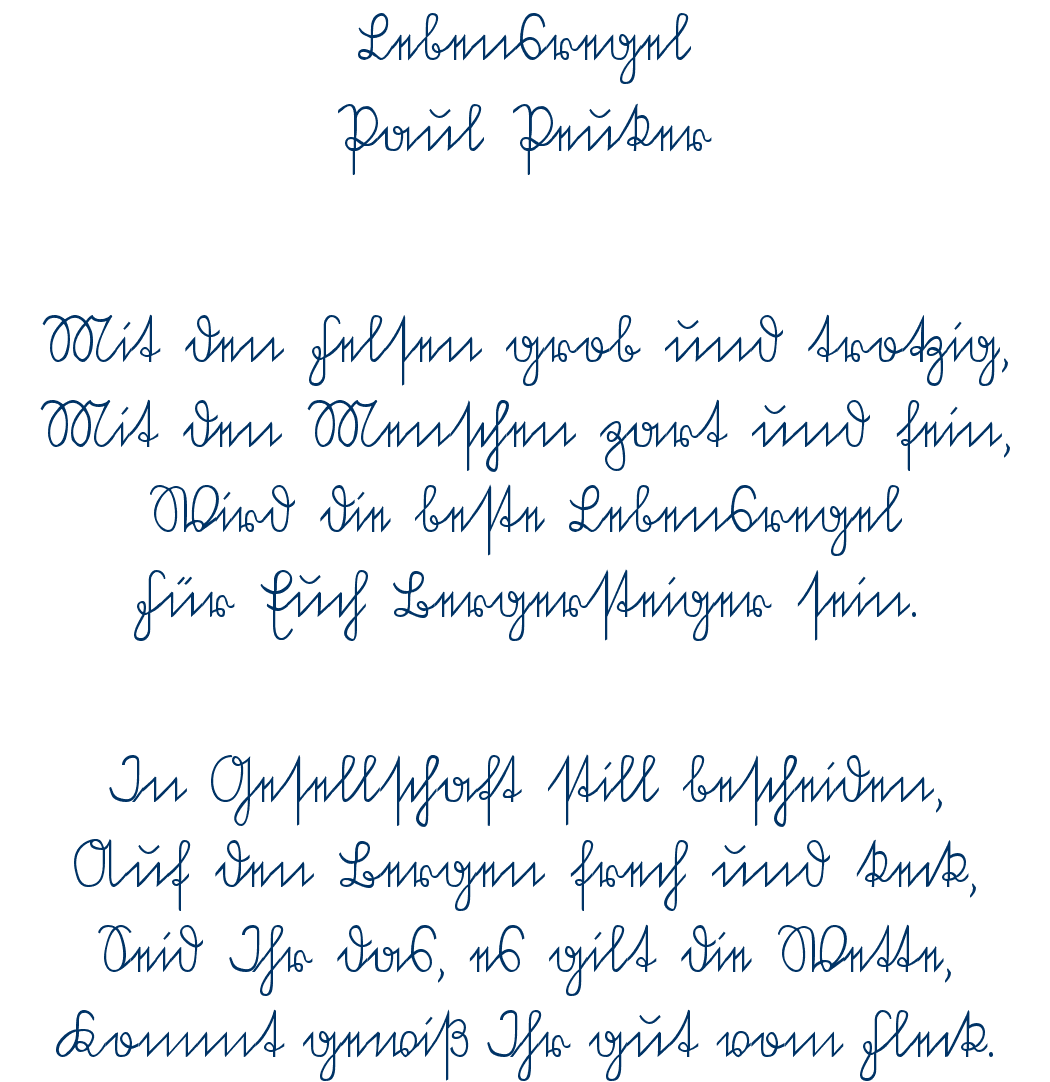 Lebensregel
Paul Peuker
Mit den Felsen grob und trotzig,
Mit den Menschen zart und fein,
Wird die beste Lebensregel
Für Euch Bergersteiger sein.
In Gesellschaft still bescheiden,
Auf den Bergen frech und keck,
Seid Ihr das, es gilt die Wette,
Kommt gewiß Ihr gut vom Fleck.